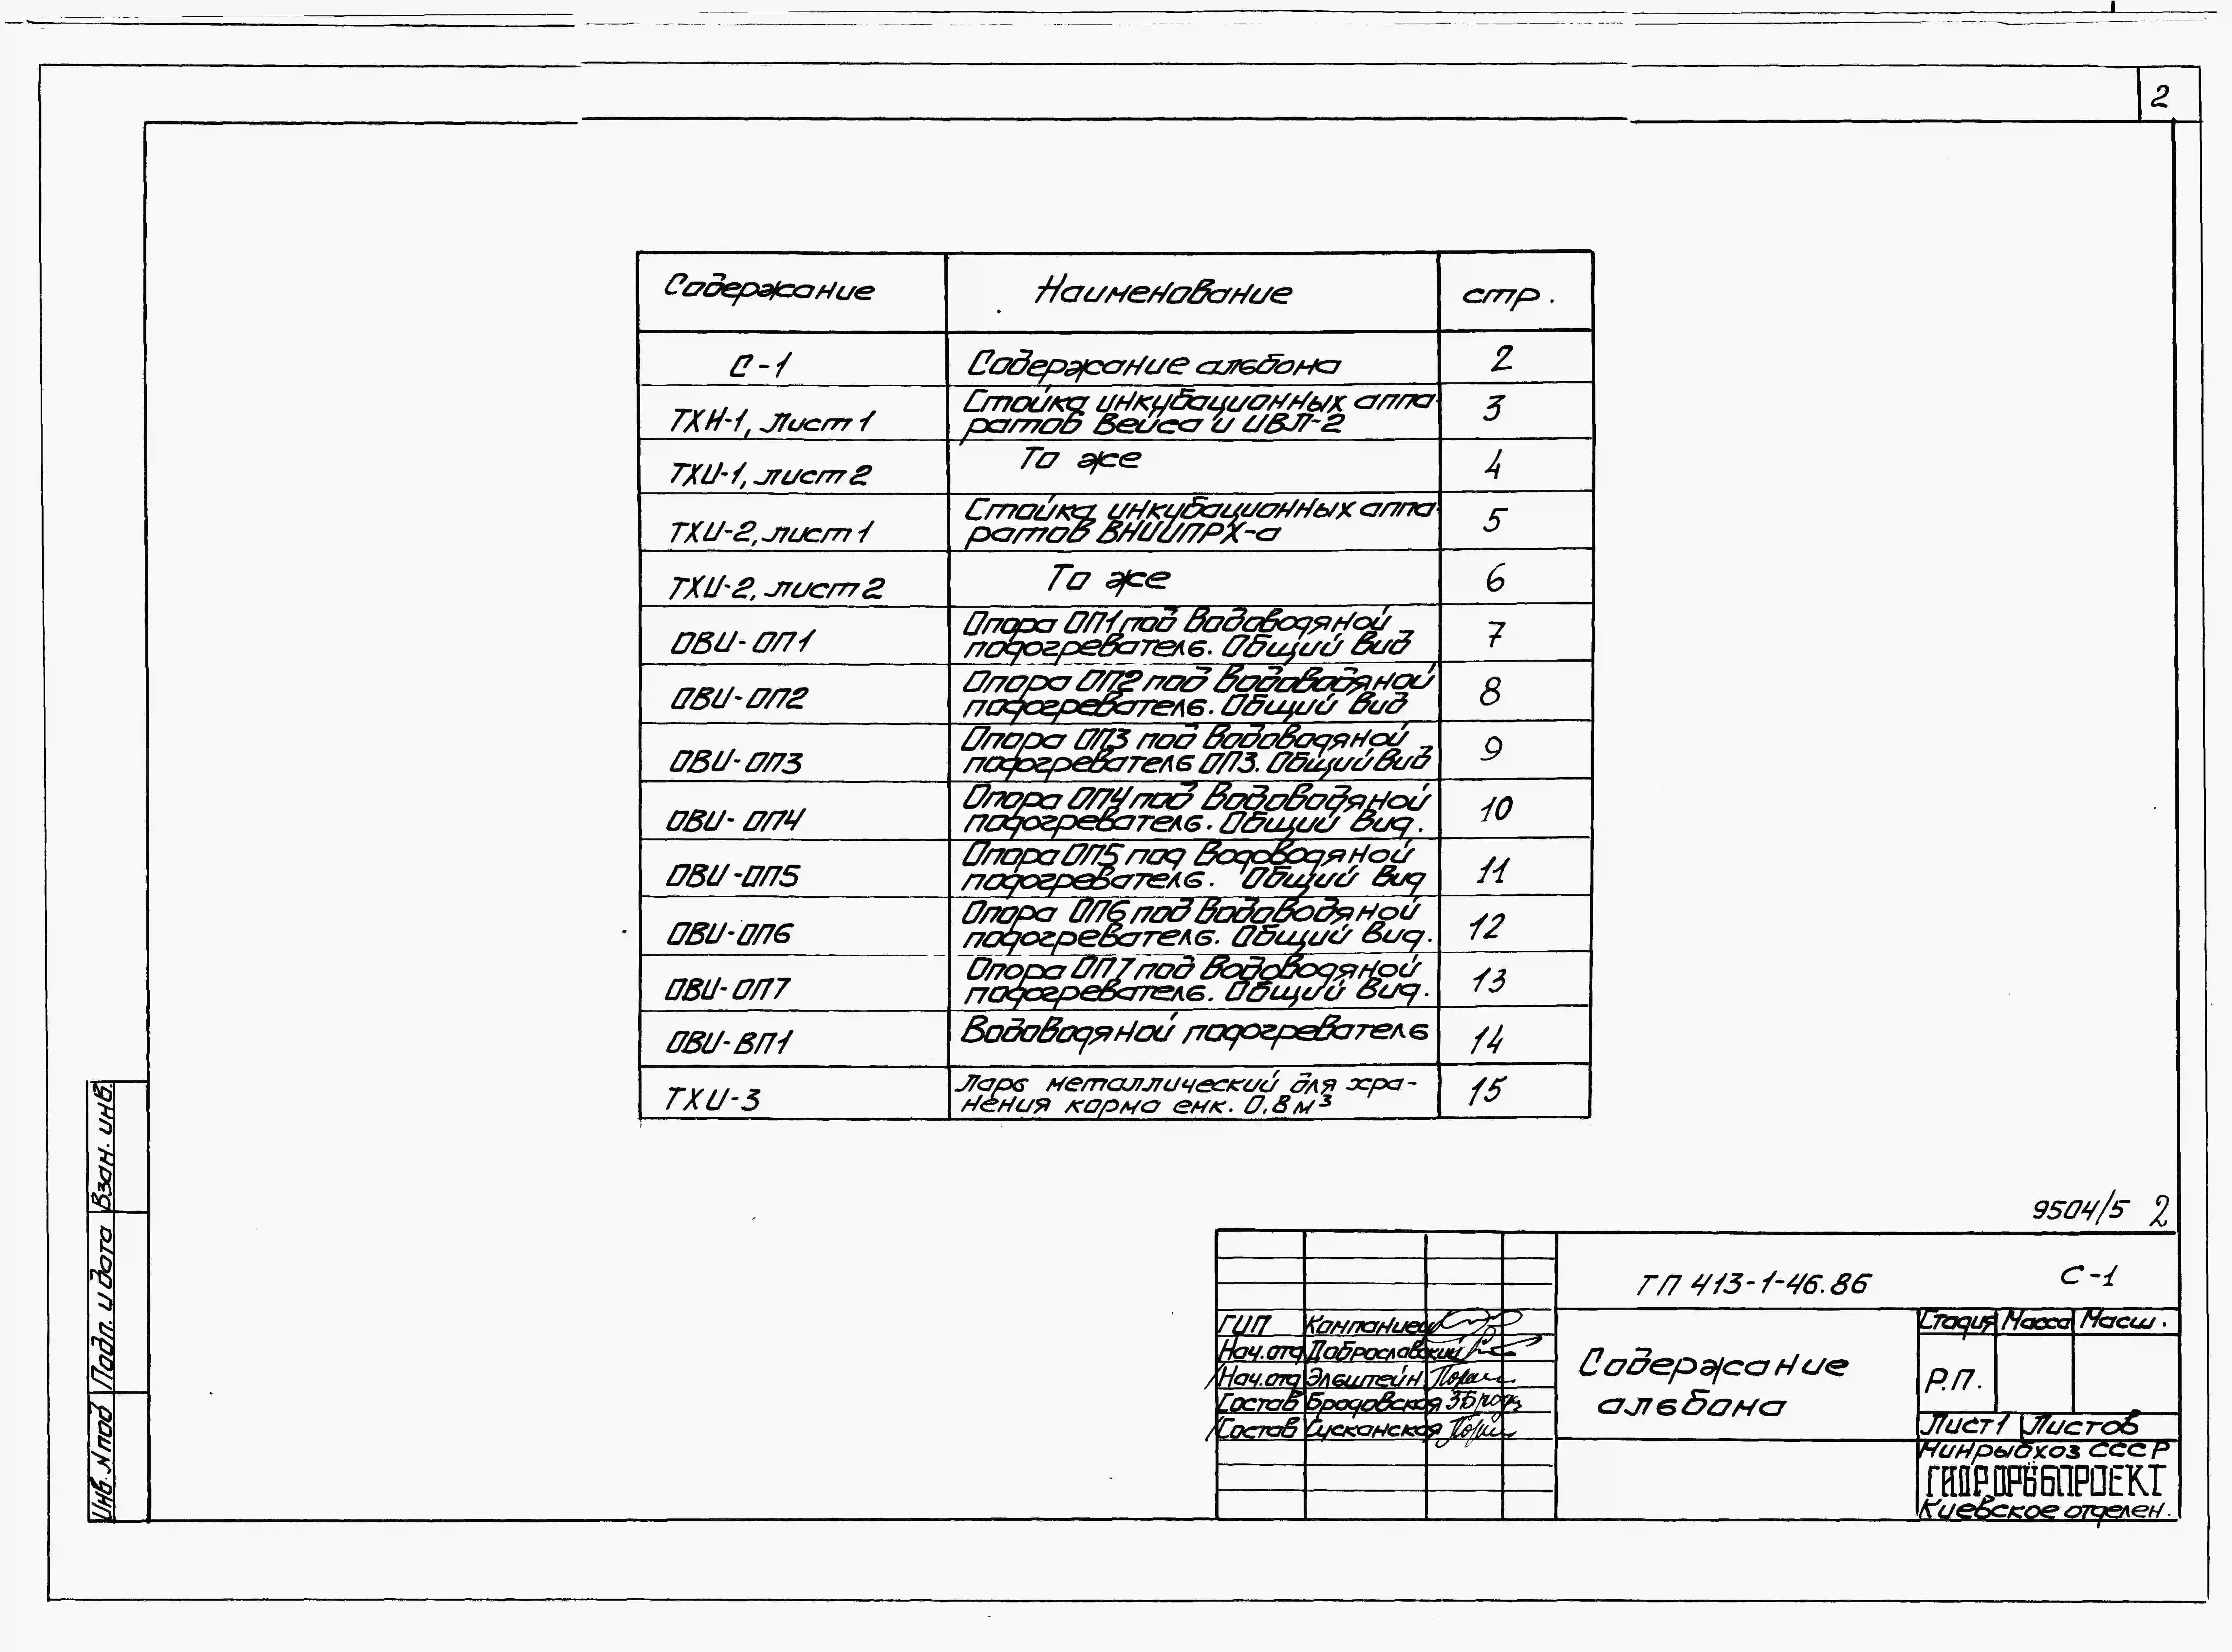 2
Содержание Наименование стр.
С-1 Содержание альбома 2
ТХН-1, Лист 1 Стойка инкубационных аппа-
ратов Вейса и ИВЛ-2 3
ТХИ-1, лист 2 То же 4
ТХИ-2, лист 1 Стойка инкубационных аппа-
ратов ВНИИПРХ-а 5
ТХИ-2, лист 2 То же 6
ОВИ-ОП1 Опора ОП1 под водоводяной
подогреватель. Общий вид 7
ОВИ-ОП2 Опора ОП2 под водоводяной
подогреватель. Общий вид 8
ОВИ-ОП3 Опора ОП3 под водоводяной
подогреватель ОП3. Общий вид 9
ОВИ-ОП4 Опора ОП4 под водоводяной
подогреватель. Общий вид. 10
ОВИ-ОП5 Опора ОП5 под водоводяной
подогреватель. Общий вид 11
ОВИ-ОП6 Опора ОП6 под водоводяной
подогреватель. Общий вид. 12
ОВИ-ОП7 Опора ОП7 под водоводяной
подогреватель. Общий вид. 13
ОВИ-ВП1 Водоводяной подогреватель 14
ТХИ-3 Ларь металлический для хра-
нения корма емк. 0,8 м³ 15
Взам. инв.
Подп. и дата
Инв. №под
9504/5 2
ТП 413-1-46.86 С-1
ГИП Компаниец
Нач.отд Доброславский
Нач.отд Эльштейн
Состав Бродовская
Состав Сусканская
Содержание
альбома
Стадия Масса Масш.
Р.П.
Лист 1 Листов
Минрыбхоз СССР
ГИДРОРЫБПРОЕКТ
Киевское отделен.